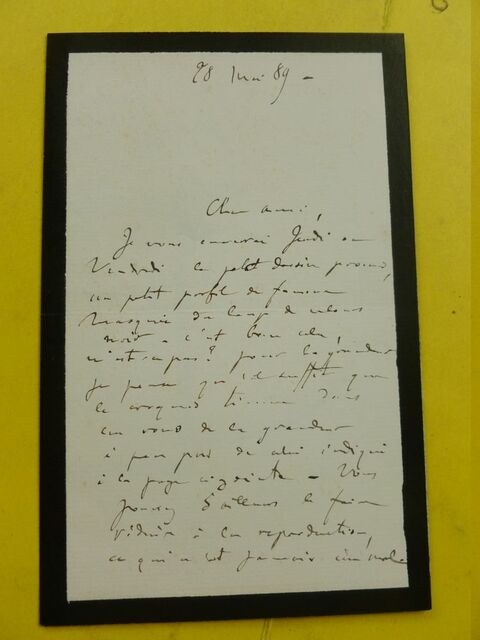 28 Mai 89 -
Cher ami,
Je vous enverrai Jeudi ou
Vendredi le petit dessin promis,
un petit profil de femme
masquée du loup de velours
noir - c'est bien cela,
n'est-ce pas? pour la grandeur
je pense qu'il suffit que
le croquis tienne dans
un rond de la grandeur
à peu près de celui indiqué
à la page ci-jointe - Vous
pouvez d'ailleurs le faire
réduire à la reproduction,
ce qui n'est jamais